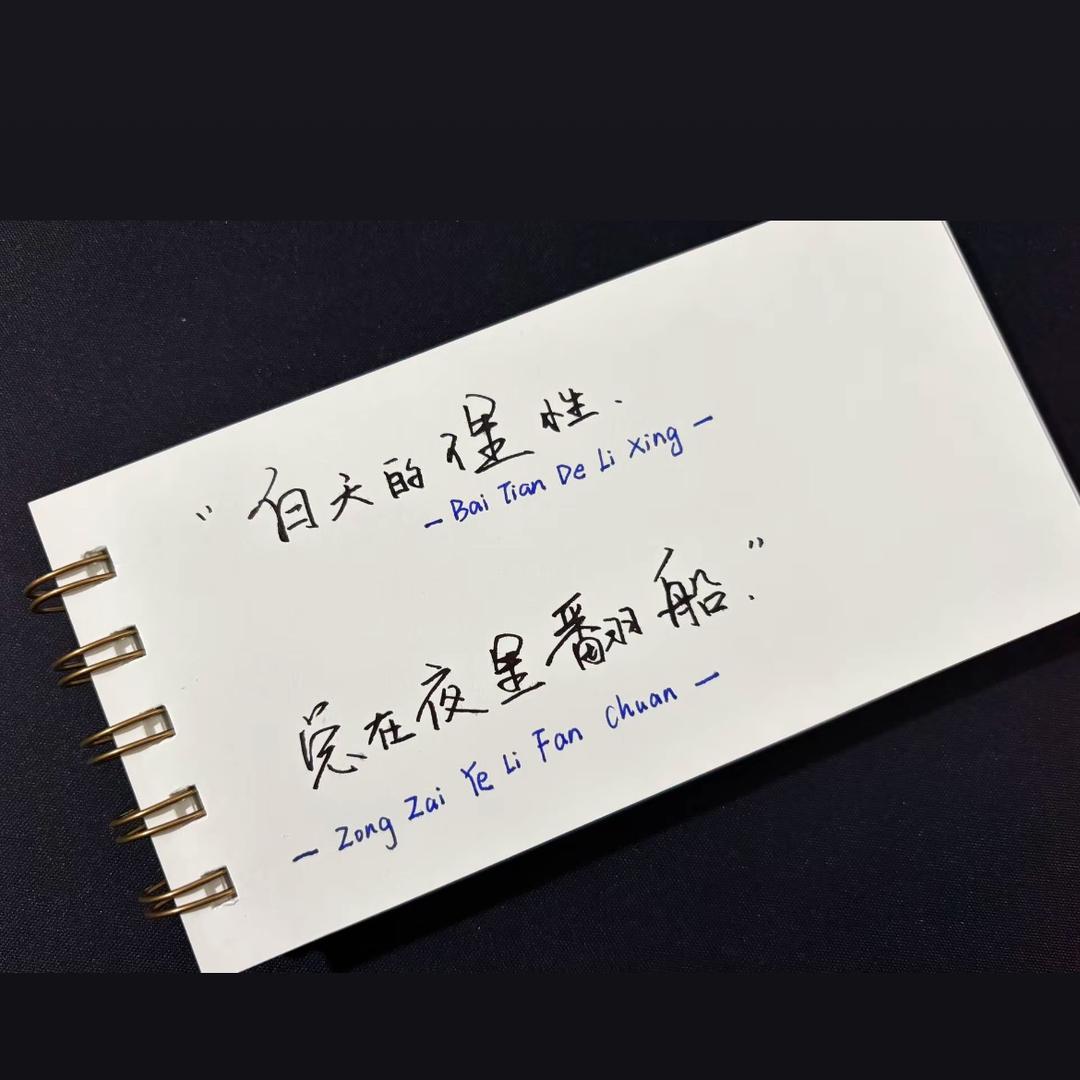 “白天的理性.
- Bai Tian De Li Xing -
总在夜里翻船.”
- Zong Zai Ye Li Fan Chuan -